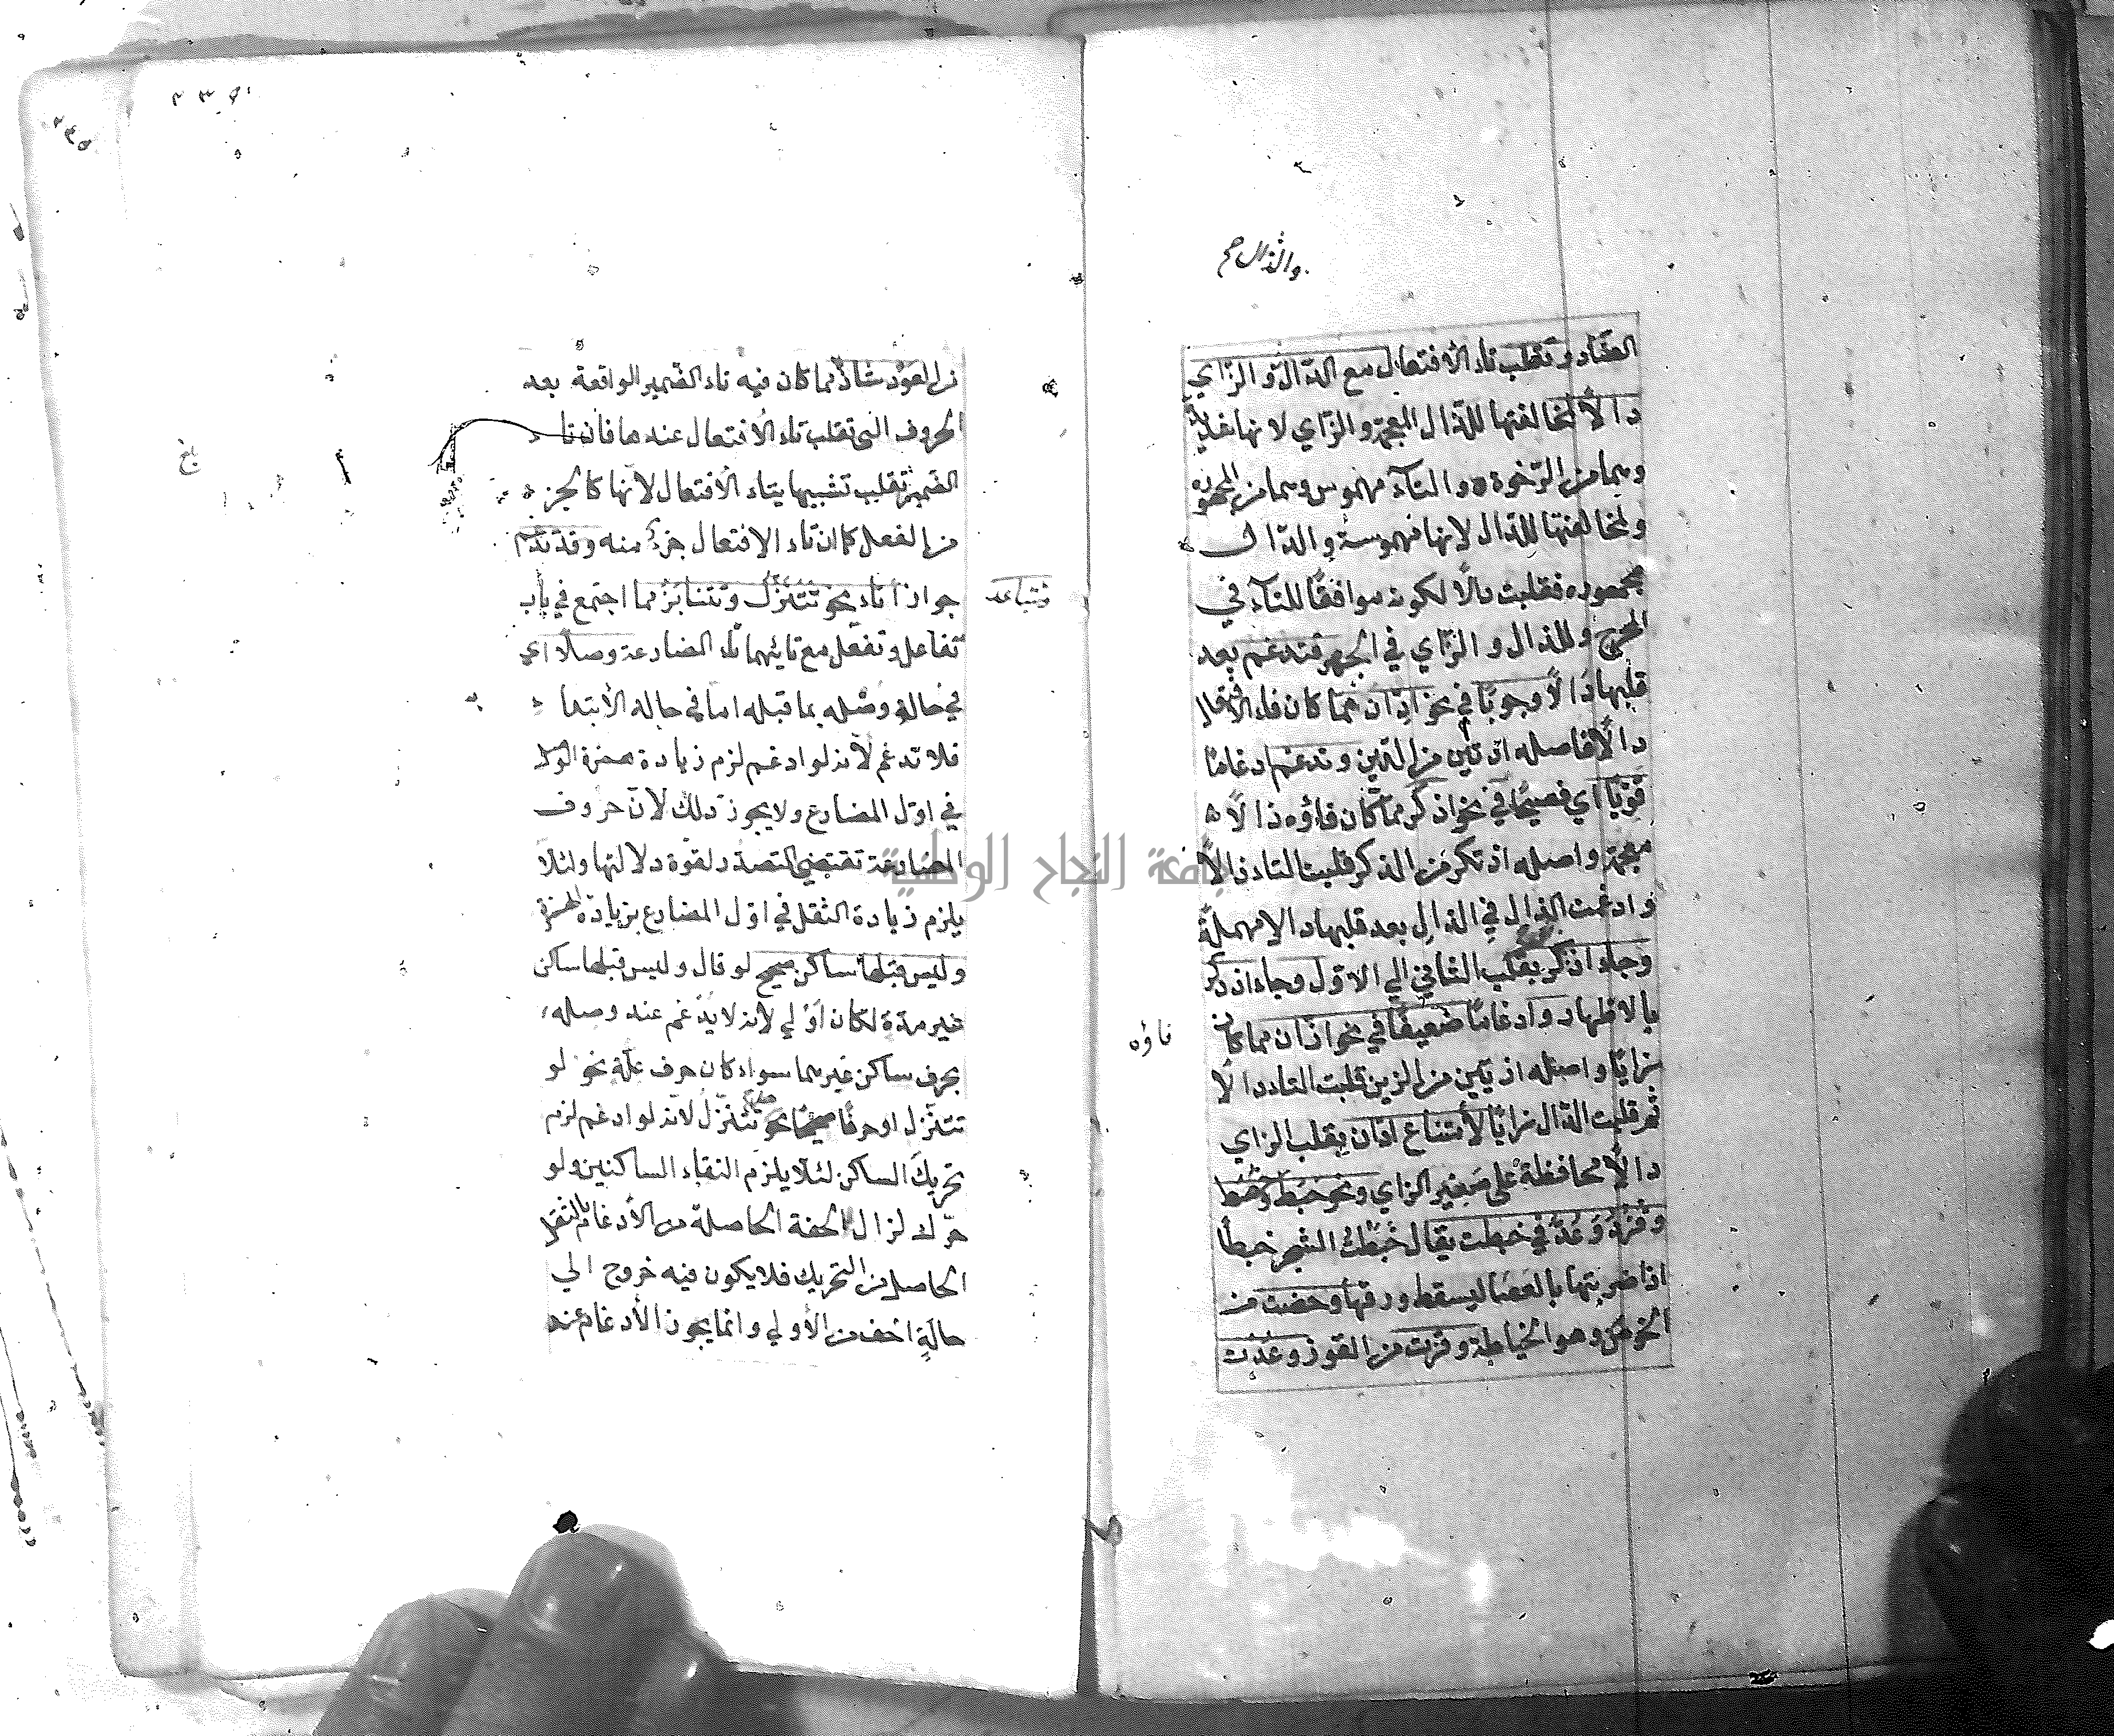 والذال صح
الضاد وتقلب تاء الافتعال مع الدال والزاي
دالا لمخالفتها للذال المعجمة والزاي لانها
وهما من الرخوة والتاء مهموس وهما من المجهورة
ولمخالفتها للدال لانها مهموسة والدال
مجهورة فقلبت دالا لكونه موافقا للتاء في
المخرج وللذال والزاي في الجهر فتدغم بعد
قلبها دالا وجوبا في نحو ادّان مما كان فاء الافتعال
دالا فاصله ادتين من الدين وتدغم ادغاما
قويا اي فصيحا في نحو اذكر مما كان فاؤه ذالا
معجمة واصله اذتكر من الذكر قلبت التاء ذالا
وادغمت الذال في الذال بعد قلبها دالا مهملة
وجاء اذكر بقلب الثاني الي الاول وجاء اذدكر
بالاظهار وادغاما ضعيفا في نحو ازّان مما كان
فاؤه
زايا واصله ازتين من الزين قلبت التاء دالا
ثم قلبت الدال زايا لامتناع ادّان بقلب الزاي
دالا محافظة على صفير الزاي ونحو خبط وحصط
وفزد وعد في خبطت يقال خبطت الشجر خبطا
اذا ضربتها بالعصا ليسقط ورقها وحصت من
الخوص وهو الخياطة وفزت من الفوز وعدت
٢٣٥
٢٣٥
من العود شاذ مما كان فيه تاء الضمير الواقعة بعد
الحروف التي تقلب تاء الافتعال عندها فان تاء
الضمير تقلب تشبيها بتاء الافتعال لانها كالجزء
من الفعل كما ان تاء الافتعال جزء منه وقد تدغم
جوازا تاء نحو تتنزل وتتنابز مما اجتمع في باب
وتتباعد
تفاعل وتفعل مع تائيهما تاء المضارعة وصلا اي
في حالة وصله بما قبله اما في حالة الابتداء
فلا تدغم لانه لو ادغم لزم زيادة همزة الوصل
في اول المضارع ولا يجوز ذلك لان حروف
المضارعة تقتضي التصدر لقوة دلالتها ولئلا
يلزم زيادة الثقل في اول المضارع بزيادة الهمزة
وليس قبلها ساكن صحيح لو قال وليس قبلها ساكن
غير مدة لكان اولي لانه لا يدغم عند وصله
بحرف ساكن غيرهما سواء كان حرف علة نحو لو
تتنزل او حرفا صحيحا نحو هل تتنزل لانه لو ادغم لزم
تحريك الساكن لئلا يلزم التقاء الساكنين ولو
حرك لزال الخفة الحاصلة من الادغام بالثقل
الحاصل من التحريك فلا يكون فيه خروج الي
حالة اخف من الاولي وانما يجوز الادغام عند
بلغ
جامعة النجاح الوطنية